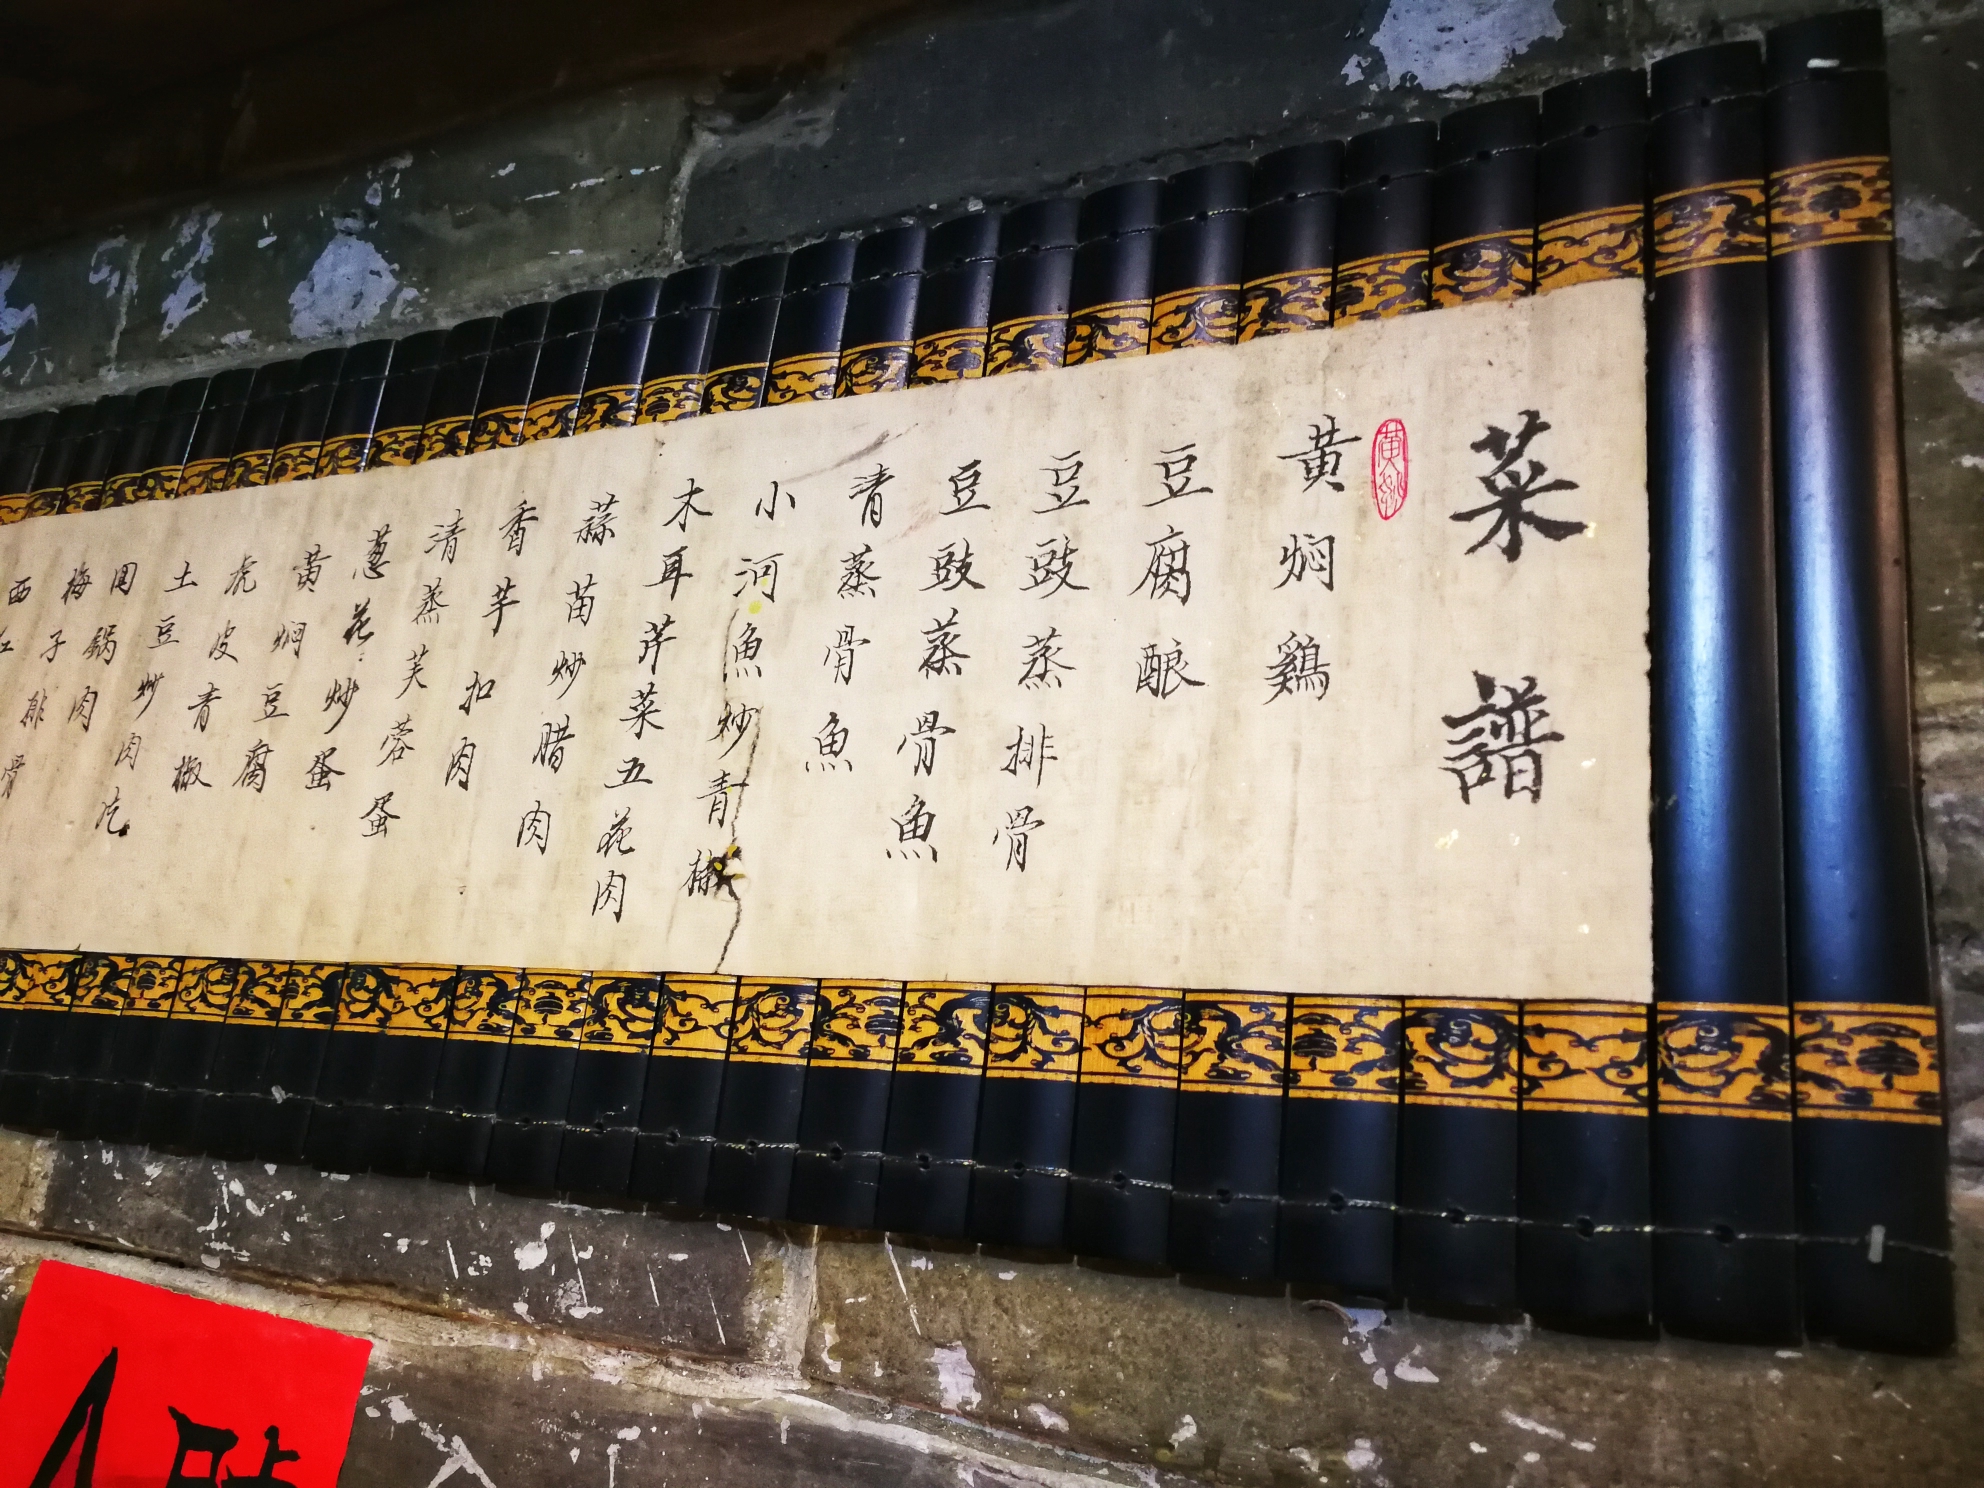 菜譜
黄焖鷄
豆腐酿
豆豉蒸排骨
豆豉蒸骨魚
青蒸骨魚
小河魚炒青椒
木耳芹菜五花肉
蒜苗炒腊肉
香芋扣肉
清蒸芙蓉蛋
葱花炒蛋
黄焖豆腐
虎皮青椒
土豆炒肉片
囬锅肉
梅子排骨
西红